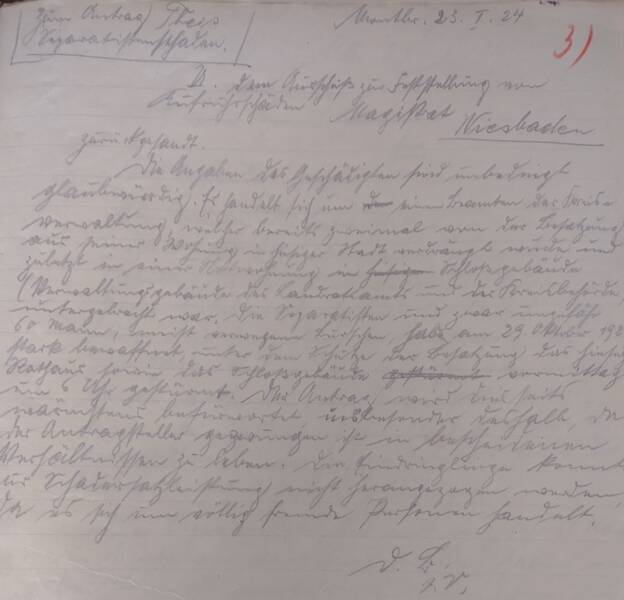 Zum Antrag Theis
Separatistenschaden.
Montbr. 23. I. 24
3)
U. dem Ausschuß zur Feststellung von
Aufruhrschäden Magistrat Wiesbaden
zurückgesandt.
Die Angaben des Geschädigten sind unbedingt
glaubwürdig. Es handelt sich um einen Beamten der Kreis-
verwaltung, welcher bereits zweimal von der Besatzung
aus seiner Wohnung in hiesiger Stadt verdrängt wurde und
zuletzt in einer Notwohnung im Schloßgebäude
(Verwaltungsgebäude des Landratsamts und der Kreisbehörde)
untergebracht war. Die Separatisten und zwar ungefähr
60 Mann, meist verwegene Burschen, habe am 29. Oktober 192
stark bewaffnet, unter dem Schutze der Besatzung das hiesige
Rathaus sowie das Schloßgebäude gestürmt vormittag
um 6 Uhr gestürmt. Der Antrag wird diesseits
wärmstens befürwortet insbesonder deshalb, da
der Antragsteller gezwungen ist in bescheidenen
Verhältnissen zu leben. Die Eindringlinge konnt
zur Schadersatzleistung nicht herangezogen werden,
da es sich um völlig fremde Personen handelt.
D. B.